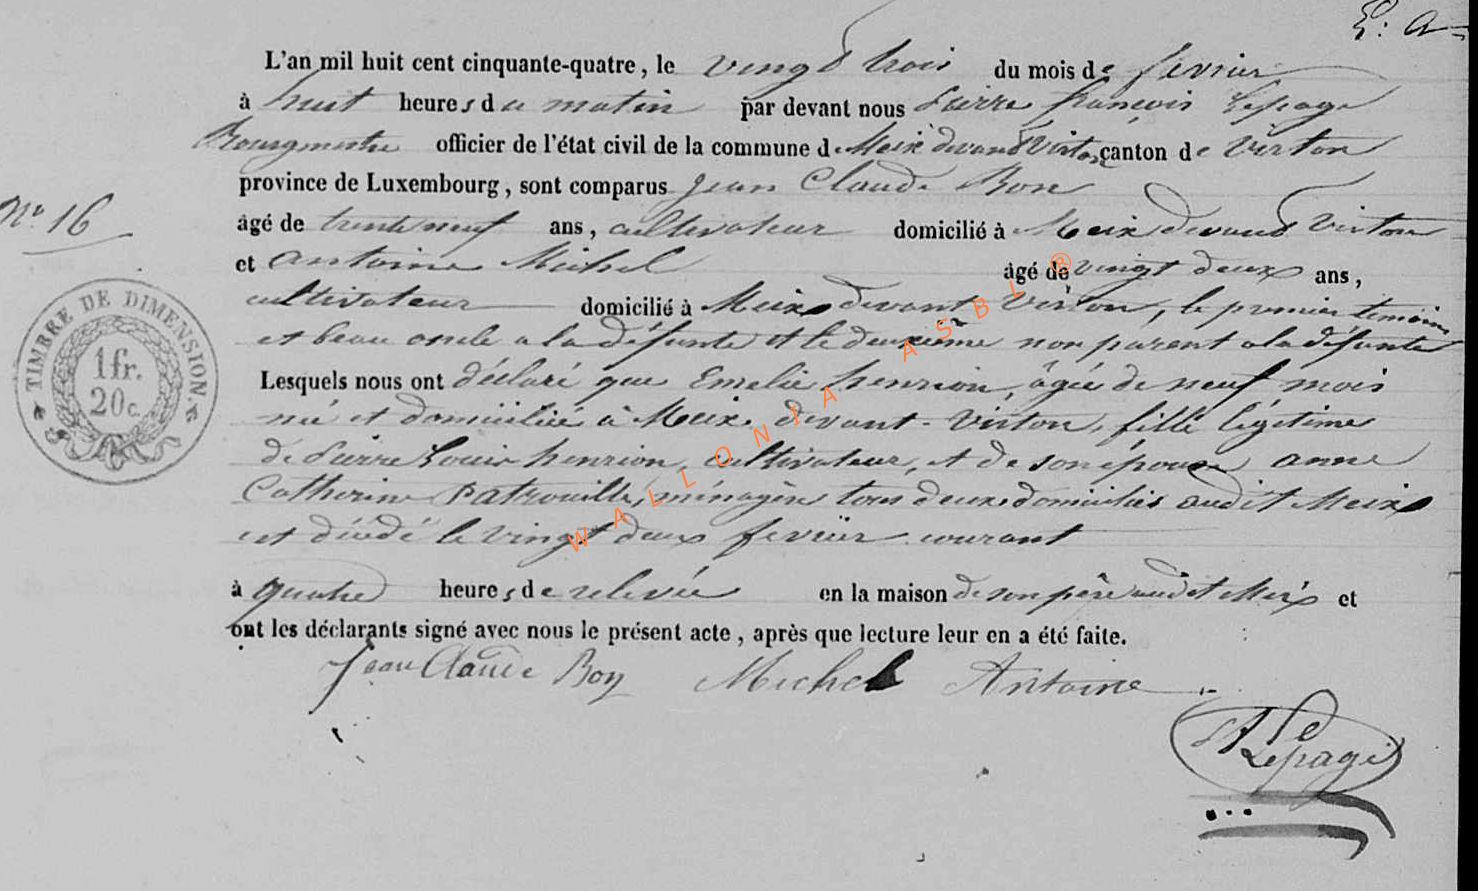 L'an mil huit cent cinquante-quatre, le vingt trois du mois de fevrier
à huit heures du matin par devant nous Pierre françois Lepage
Bourgmestre officier de l'état civil de la commune de Meix devant Virton canton de Virton
province de Luxembourg, sont comparus Jean Claude Bon
N° 16
âgé de trente neuf ans, cultivateur domicilié à Meix devant Virton
et Antoine Michel âgé de vingt deux ans,
cultivateur domicilié à Meix devant Virton, le premier temoin
est beau oncle a la défunte et le deuxième non parent a la défunte
TIMBRE DE DIMENSION.
1 fr.
20 c.
Lesquels nous ont déclaré que Emelie henrion, âgée de neuf mois
né et domiciliée à Meix devant-Virton, fille légitime
de Pierre Louis henrion, cultivateur, et de son épouse anne
Catherine Patrouille, ménagère tous deux domiciliés audit Meix
est décédé le vingt deux fevrier courant
à quatre heures de relevée en la maison de son père audit Meix et
ont les déclarants signé avec nous le présent acte, après que lecture leur en a été faite.
Jean Claude Bon Michel Antoine
Lepage
WALLONIA ASBL ®